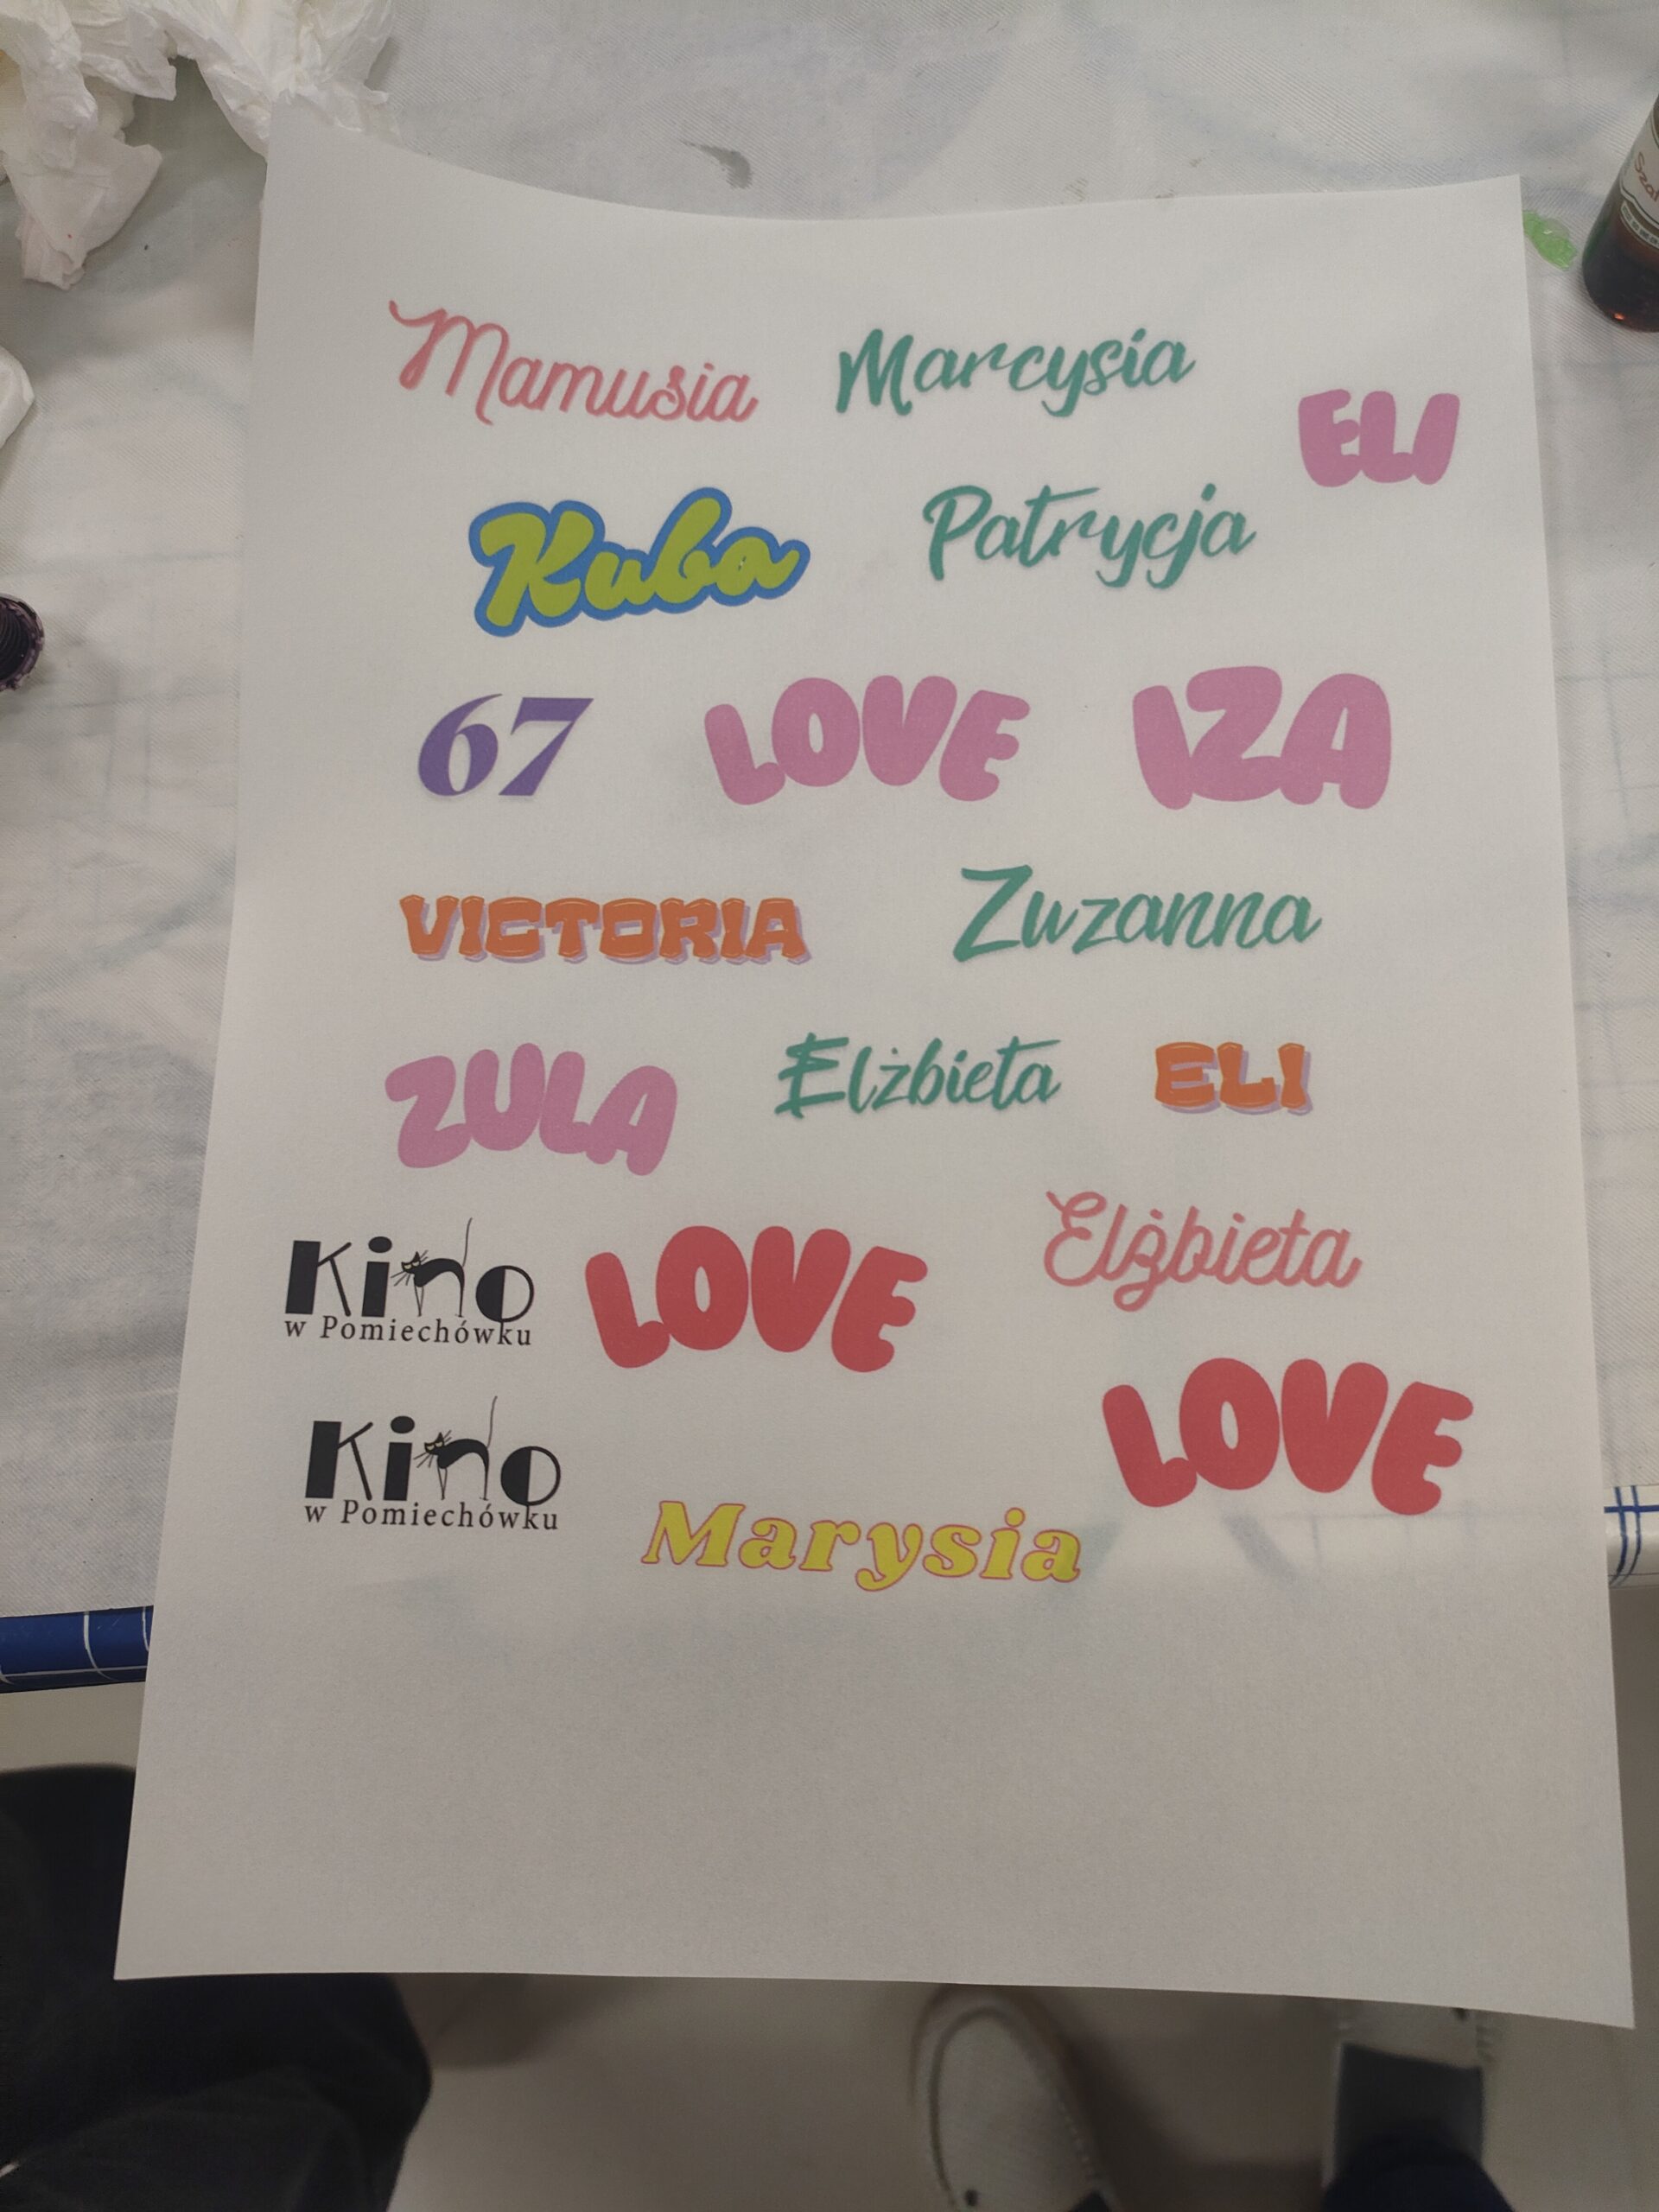 Mamusia Marcysia
ELI
Kuba Patrycja
67 LOVE IZA
VICTORIA Zuzanna
ZULA Elżbieta ELI
Kino LOVE Elżbieta
w Pomiechówku
Kino LOVE
w Pomiechówku
Marysia